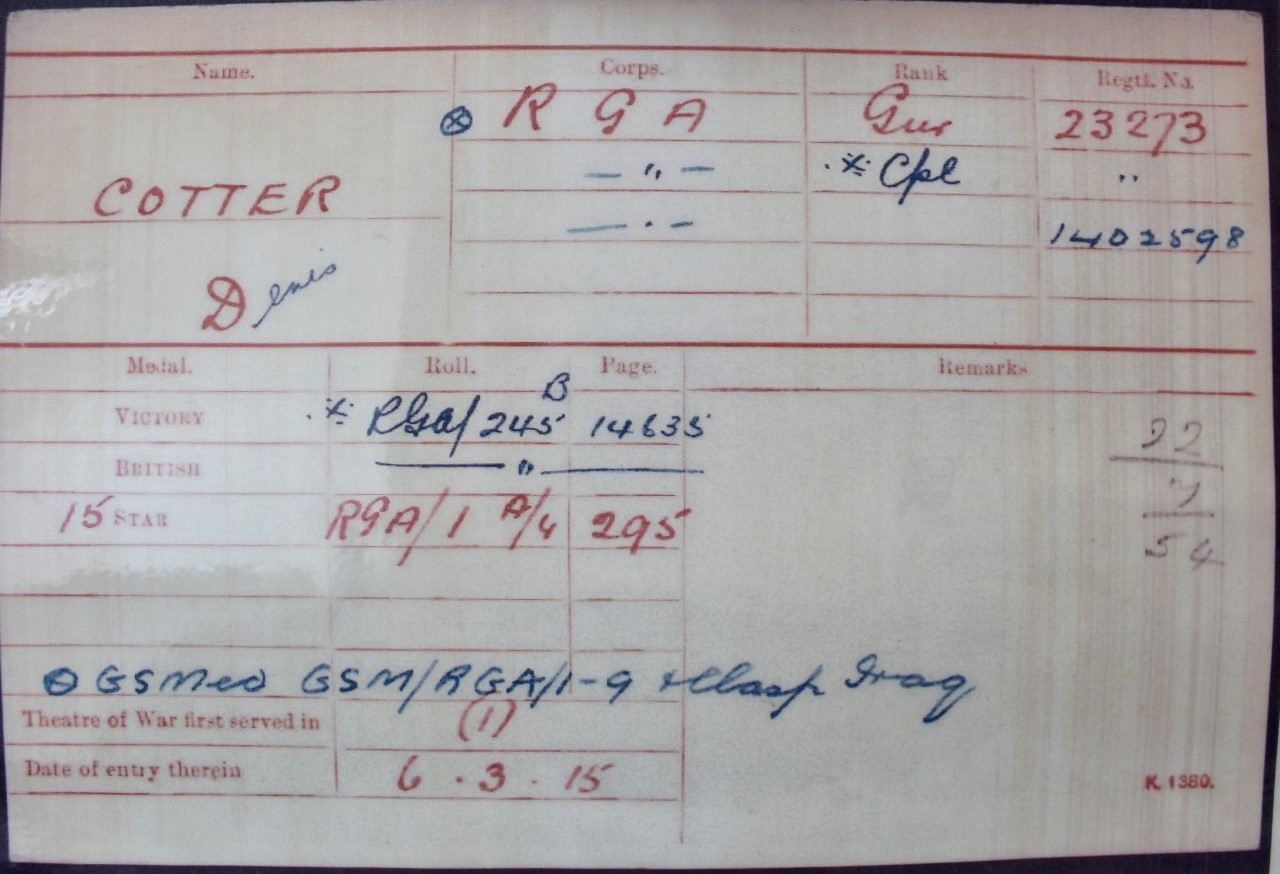 Name. Corps. Rank Regtl. No.
⊗ R G A Gnr 23273
— " — ※ Cpl "
COTTER
— " — 1402598
Denis
Medal. Roll. Page. Remarks
VICTORY ※ RGA/245 B 14635
BRITISH — " —
15 STAR RGA/1 A/4 295
22
54
⊗ GSMed GSM/RGA/1-9 + Clasp Iraq
Theatre of War first served in (1)
Date of entry therein 6.3.15
K. 1380.